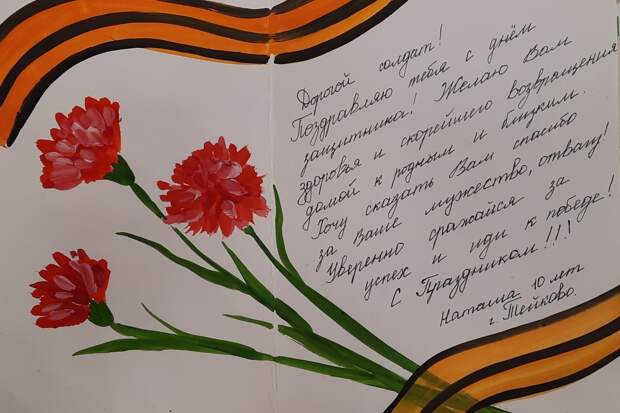 Дорогой солдат!
Поздравляю тебя с днём
защитника! Желаю Вам
здоровья и скорейшего возвращения
домой к родным и близким.
Хочу сказать Вам спасибо
за Ваше мужество, отвагу!
Уверенно сражайся за
успех и иди к победе!
С Праздником!!!
Наташа 10 лет
г. Тейково.